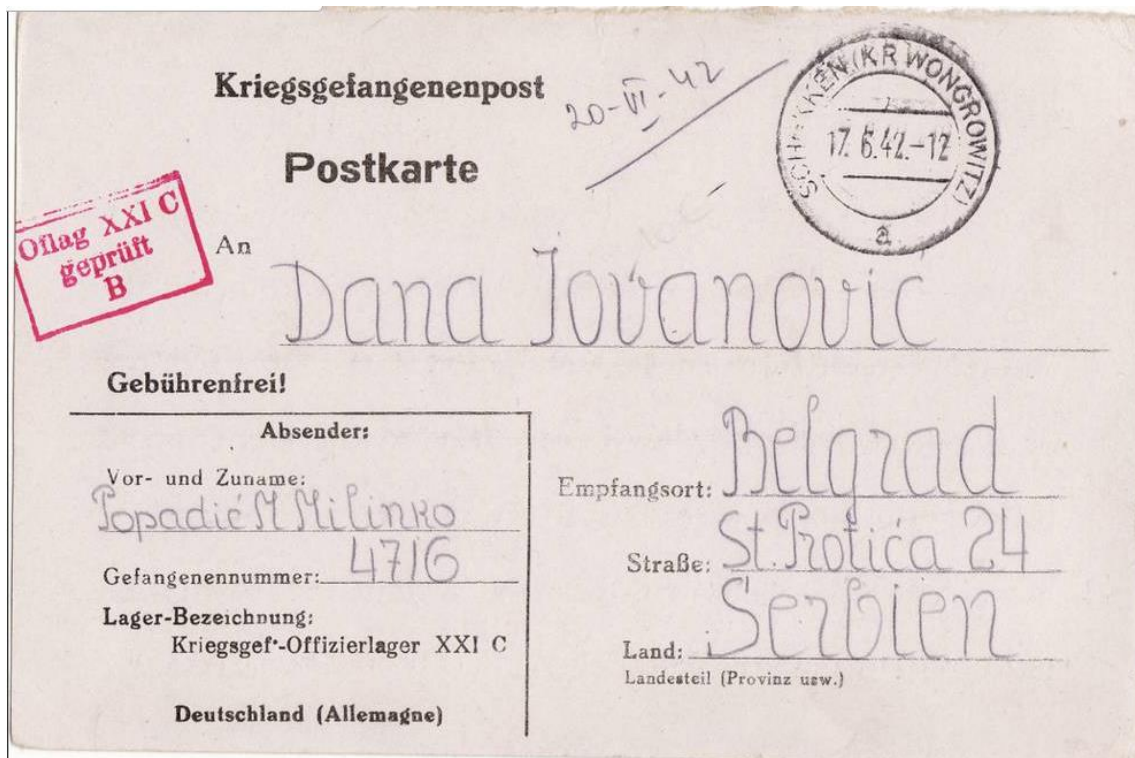 Kriegsgefangenenpost
20-VI-42
SCHOKKEN (KR WONGROWITZ)
17.6.42.-12
a
Postkarte
Oflag XXI C
geprüft
B
An
Dana Jovanović
Gebührenfrei!
Absender:
Vor- und Zuname:
Popadić M Milinko
Gefangenennummer: 4716
Lager-Bezeichnung:
Kriegsgef.-Offizierlager XXI C
Deutschland (Allemagne)
Empfangsort: Belgrad
Straße: St. Protića 24
Land: Serbien
Landesteil (Provinz usw.)